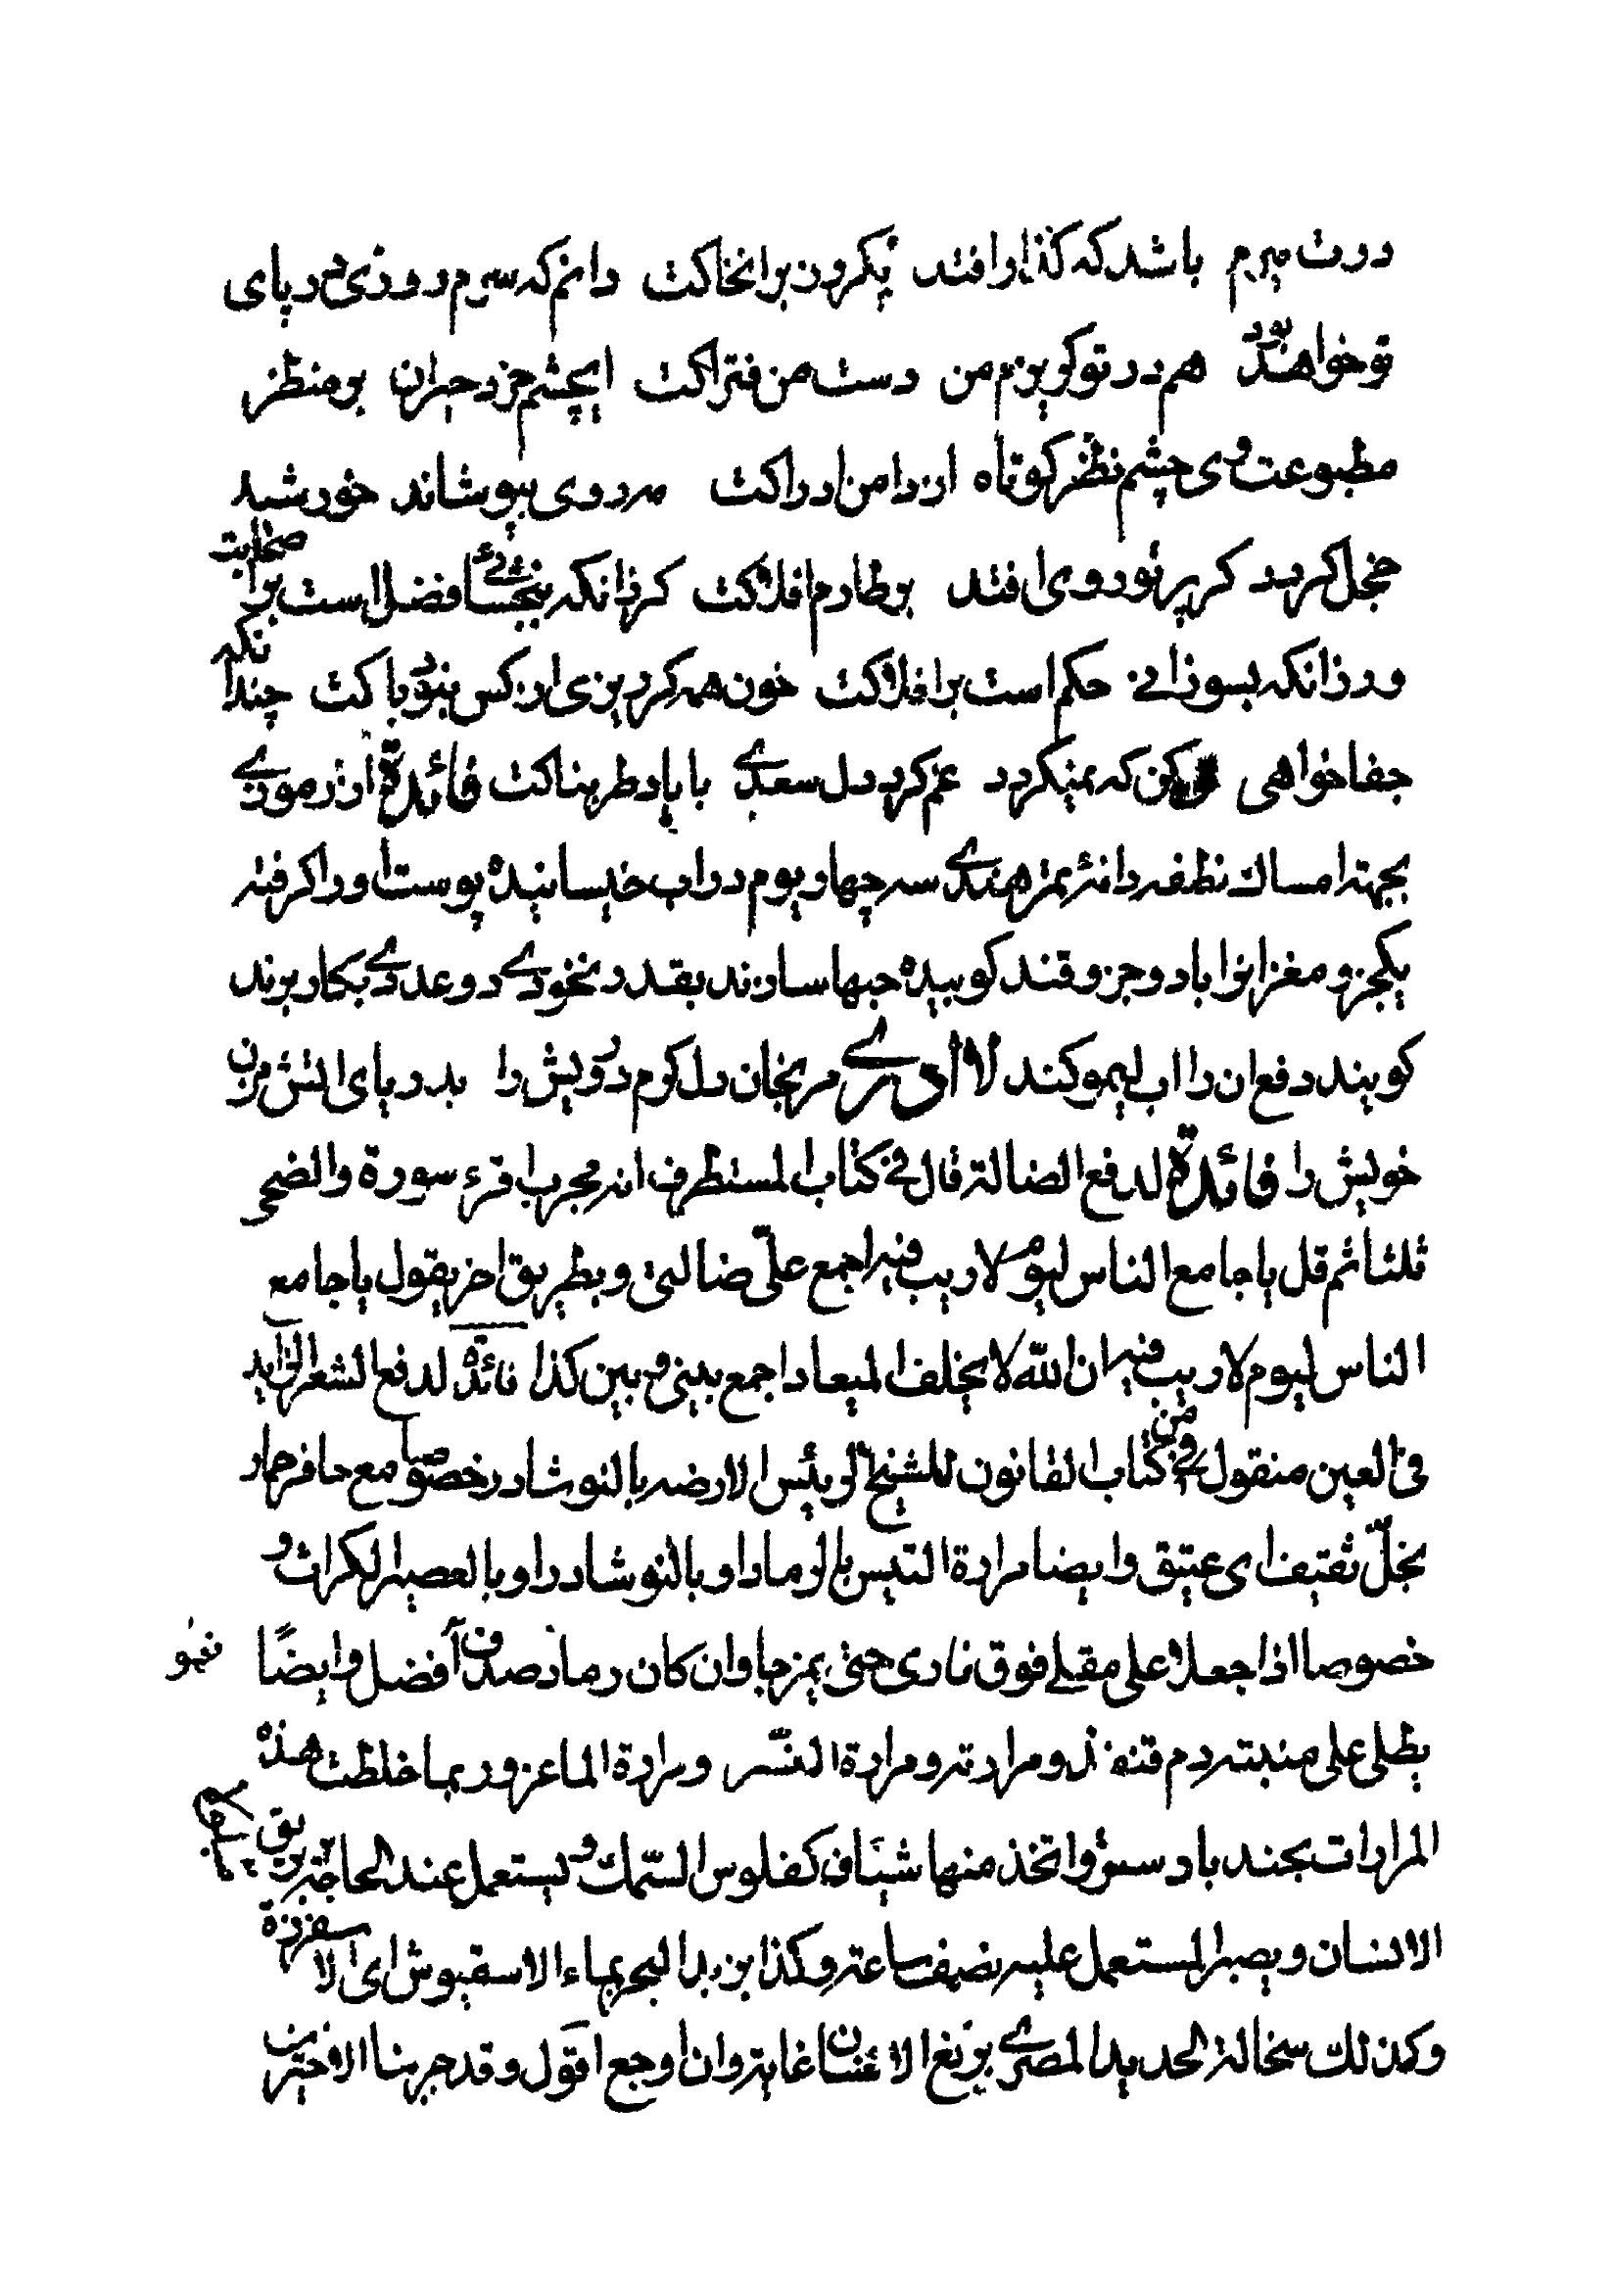 درت میرم باشد که گذارا فتد یکروز برانخاکت دانم که سرم روزی در پای
تو خواهد بود هم در تو کریزم من دست من فتراکت ایچشم خرد حیران بر منظر
مطبوعت وی چشم نظر کوتاه از دامن ادراکت مه روی بپوشاند خورشید
خجل کردد کر پرتو روی افتد بر طارم افلاکت کر زانکه ببخشائی فضل است بر اصحابت
ور زانکه بسوزانی حکم است بر افلاکت خون همه کر ریزی از کس نبود باکت چندانکه
جفا خواهی میکن که نمیکردد غم کرد دل سعدی با یاد طربناکت فائدة از رموزی
بجهته امساک نطفه دانهٔ تمر هندی سه چهار یوم در اب خیسانیده پوست او را کرفته
یکجزو مغز انرا با دو جزو قند کوبیده حبها سازند بقدر نخودی دو عددی بکار برند
کویند دفع ان را اب لیمو کند لا ادری مرنجان دل کرم درویش را بدر پای اتش مزن
خویش را فائدة لدفع الضالة قال فی کتاب المستطرف انه مجرب اقرء سورة والضحی
ثلثا ثم قل یا جامع الناس لیوم لا ریب فیه اجمع علیّ ضالتی و بطریق اخر یقول یا جامع
الناس لیوم لا ریب فیه ان الله لا یخلف المیعاد اجمع بینی و بین کذا فائدة لدفع الشعر الزاید
فی العین منقول من کتاب القانون للشیخ الرئیس الارضه بالنوشادر خصوصا مع حافر حمار
بخلّ ثقیف ای عتیق و ایضا مرارة التیس بالرماد او بالنوشادر او بالعصیر الکراث و
خصوصا اذا جعلا علی مقلی فوق نار حتی یمزجا و ان کان رماد صدف آفضل و ایضًا
یطلی علی منبته دم قنفذ و مرارته و مرارة النّسر و مرارة الماعز و ربما خلطت هذه
المرارات بجند بادستر و اتخذ منها شیاف کفلوس السّمک و یستعمل عند الحاجة بریق
الانسان و یصبر المستعمل علیه نصف ساعة و کذا زبد البحر بماء الاسقیوش ای الا سفرزة
و کذلک سخالة الحدید المصری بریق الانسان غایة و ان اوجع اقول و قد جربنا الاخیرین